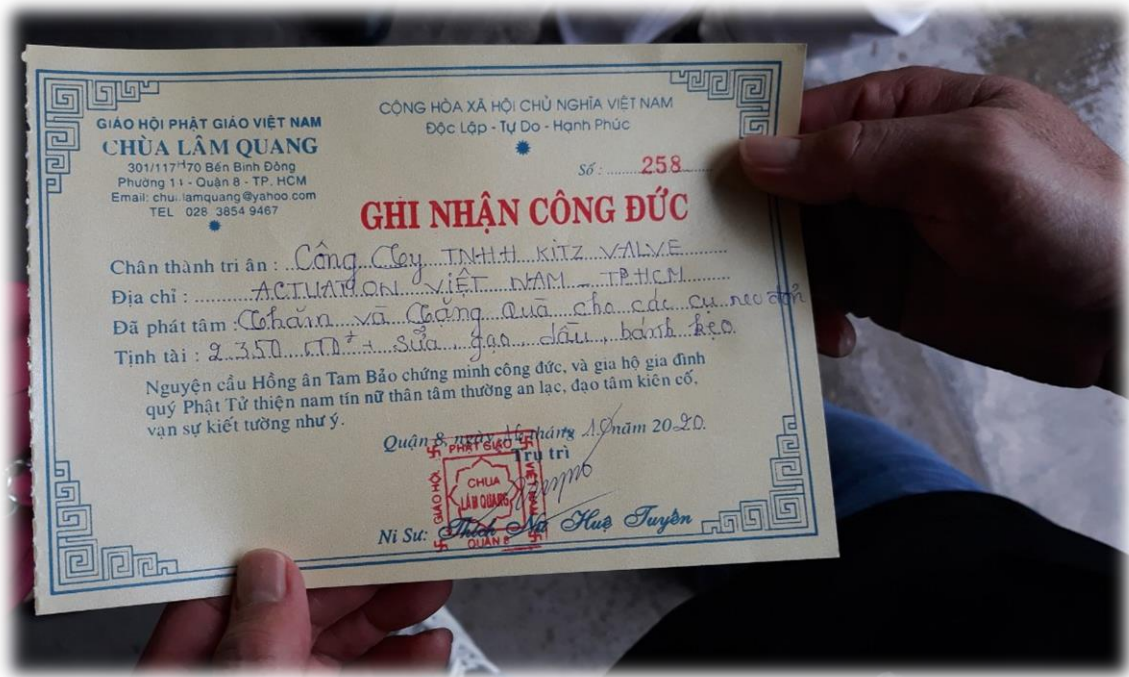 GIÁO HỘI PHẬT GIÁO VIỆT NAM
CHÙA LÂM QUANG
301/117-70 Bến Bình Đông
Phường 11 - Quận 8 - TP. HCM
Email: chualamquang@yahoo.com
TEL 028 3854 9467
CỘNG HÒA XÃ HỘI CHỦ NGHĨA VIỆT NAM
Độc Lập - Tự Do - Hạnh Phúc
Số : 258
GHI NHẬN CÔNG ĐỨC
Chân thành tri ân : Công Ty TNHH KITZ VALVE
Địa chỉ : ACTUATION VIỆT NAM - TP.HCM
Đã phát tâm : Thăm và Tặng Quà cho các cụ neo đơn
Tịnh tài : 2.350 + sữa, gạo, dầu, bánh kẹo.
Nguyện cầu Hồng ân Tam Bảo chứng minh công đức, và gia hộ gia đình
quý Phật Tử thiện nam tín nữ thân tâm thường an lạc, đạo tâm kiên cố,
vạn sự kiết tường như ý.
Quận 8, ngày 16 tháng năm 2020.
Trụ trì
GIÁO HỘI PHẬT GIÁO VIỆT NAM
CHÙA
LÂM QUANG
QUẬN 8
Ni Sư: Thích Nữ Huệ Tuyên